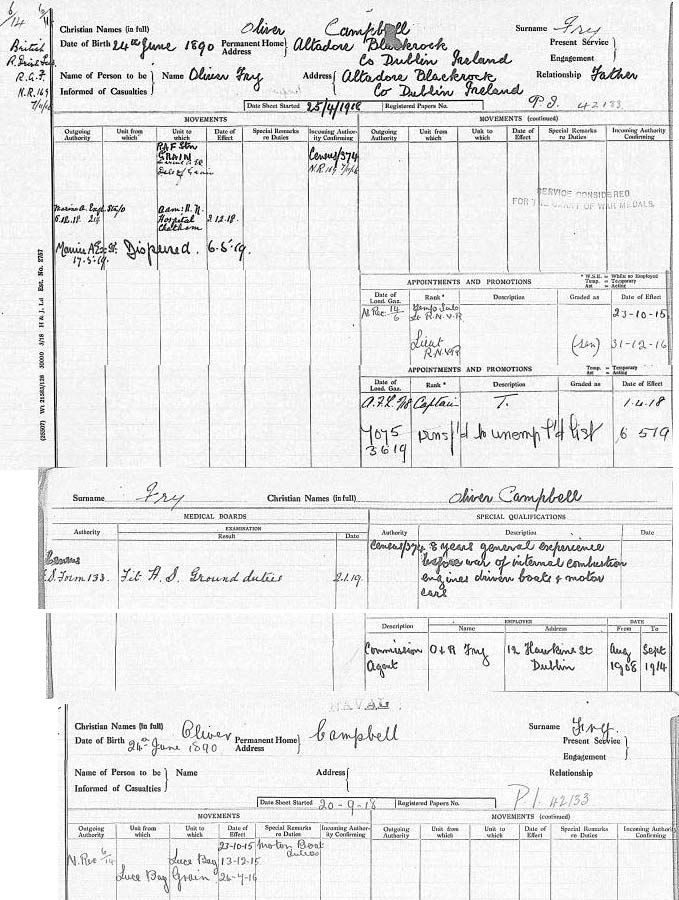 6/14
British
R.G.F.
N.R. 169
Christian Names (in full) Oliver Campbell Surname Fry
Date of Birth 24th June 1890 Permanent Home Address } Altadore Blackrock Co Dublin Ireland Present Service }
Engagement
Name of Person to be Informed of Casualties } Name Oliver Fry Address { Altadore Blackrock Co Dublin Ireland Relationship Father
Date Sheet Started 25/4/1918 Registered Papers No. P.I. 42133
MOVEMENTS
Outgoing Authority Unit from which Unit to which Date of Effect Special Remarks re Duties Incoming Authority Confirming
RAF Stn GRAIN Census/374
N.R. 169
6.12.18 Adm: R.N. Hospital Chatham 3.12.18.
17.5.19. Dispersed. 6.5.19.
MOVEMENTS (continued)
Outgoing Authority Unit from which Unit to which Date of Effect Special Remarks re Duties Incoming Authority Confirming
SERVICE CONSIDERED
FOR THE GRANT OF WAR MEDALS.
* W.S.E. = While so Employed
Temp. = Temporary
Act = Acting
APPOINTMENTS AND PROMOTIONS
Date of Lond. Gaz. Rank* Description Graded as Date of Effect
N. Rec. 14/6 R.N.V.R 23-10-15
Lieut R.N.V.R (Sen) 31-12-16
APPOINTMENTS AND PROMOTIONS
Temp. = Temporary
Act = Acting
Date of Lond. Gaz. Rank* Description Graded as Date of Effect
A.F.L. Captain T. 1.4.18
7075 3619 trns/'d to unemp'l'd list 6 519
(25507) Wt. 21583/128 30000 3/18 H & J, Ld Est. No. 2757
Surname Fry Christian Names (in full) Oliver Campbell
MEDICAL BOARDS
Authority EXAMINATION Result Date
S. Form 133. Fit A. S. Ground duties 2.1.19.
SPECIAL QUALIFICATIONS
Authority Description Date
Census/374. 8 years general experience
before war of internal combustion
engines driven boats & motor
cars
Description EMPLOYER Name Address DATE From To
Commission Agent O & R Fry 12 Hawkins St Dublin Aug 1908 Sept 1914
NAVAL
Christian Names (in full) Oliver Campbell Surname Fry.
Date of Birth 24th June 1890 Permanent Home Address } Present Service }
Engagement
Name of Person to be Informed of Casualties } Name Address { Relationship
Date Sheet Started 20-9-18 Registered Papers No. P.I. 42133
MOVEMENTS
MOVEMENTS (continued)
Outgoing Authority Unit from which Unit to which Date of Effect Special Remarks re Duties Incoming Authority Confirming Outgoing Authority Unit from which Unit to which Date of Effect Special Remarks re Duties Incoming Authority Confirming
23-10-15 Motor Boat duties
N. Rec 6/14 Luce Bay 13-12-15
Luce Bay Grain 26-7-16